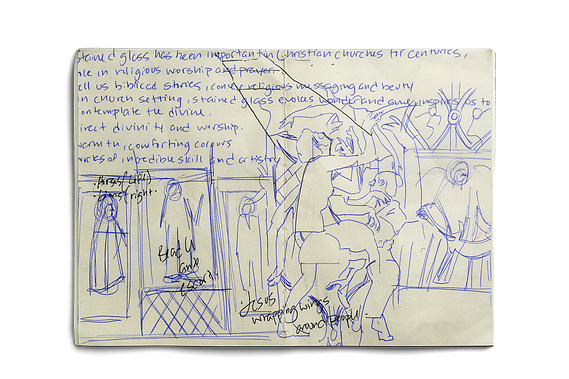 stained glass has been important in Christian churches for centuries,
role in religious worship and prayer.
tell us biblical stories, convey religious messaging and beuty
in church setting, stained glass evokes wonder and awe, inspires us to
contemplate the divine.
direct divinity and worship.
warmth, comforting colours
works of incredible skill and artistry
(left)
right.
and
Jesus
wrapping wings
around people